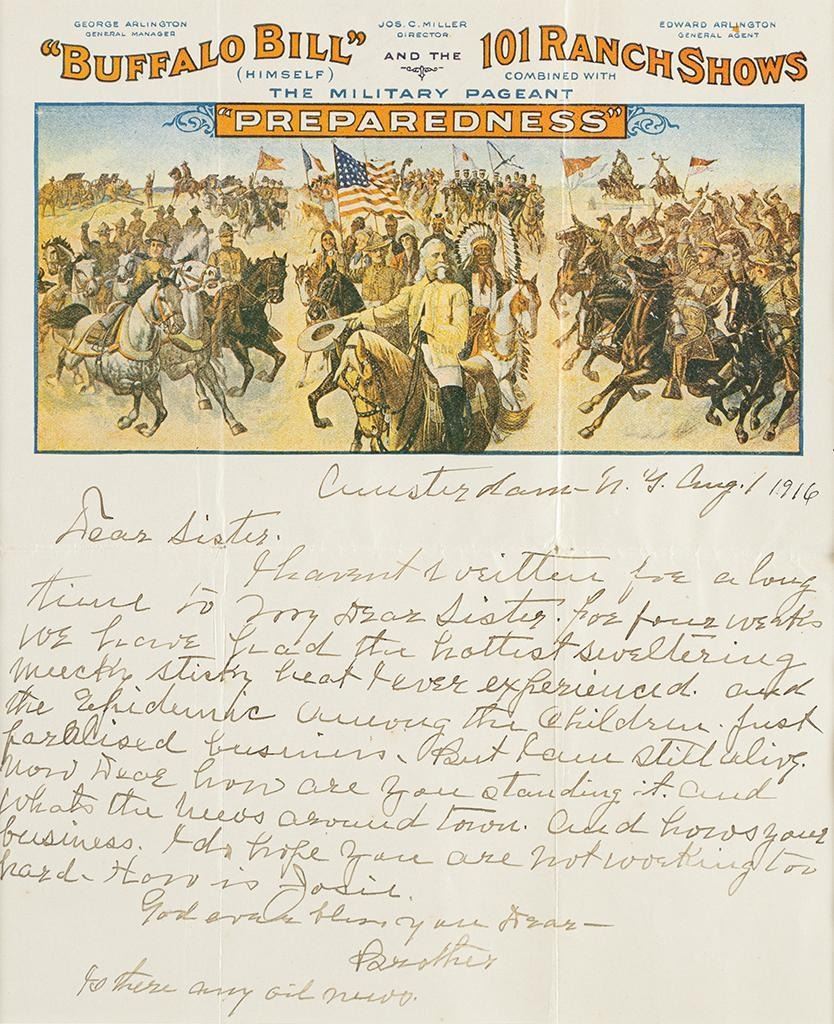 GEORGE ARLINGTON
GENERAL MANAGER
JOS. C. MILLER
DIRECTOR
EDWARD ARLINGTON
GENERAL AGENT
"BUFFALO BILL" AND THE 101 RANCH SHOWS
(HIMSELF) COMBINED WITH
THE MILITARY PAGEANT
"PREPAREDNESS"
Amsterdam - N. Y. Aug. 1 1916
Dear Sister.
I havent written for a long
time to my Dear Sister. For four weeks
we have had the hottest sweltering
muecky sticky heat I ever experienced. and
the Epidemic among the Children. just
paralised business. But I am still alive.
Now Dear how are you standing it. and
whats the news around town. And hows your
business. I do hope you are not working too
hard - How is Josie.
God ever bless you Dear -
Brother
Is there any oil news.